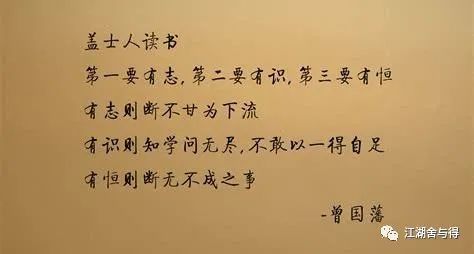 盖士人读书
第一要有志,第二要有识,第三要有恒
有志则断不甘为下流
有识则知学问无尽,不敢以一得自足
有恒则断无不成之事
-曾国藩
江湖舍与得